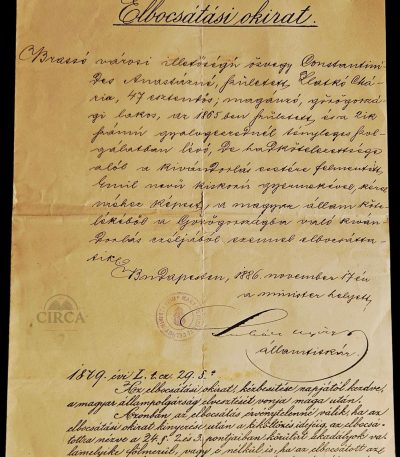 Elbocsátási okirat.
Brassó városi illetőségű özvegy Constantini-
des Anasztázné, született Zlatkó Chá-
ria, 47 esztendős; magánzó, görögorszá-
gi lakos, az 1865 ben született, és a 2ik
számú gyalogezrednél tényleges szol-
gálatban lévő, de hadkötelezettsége
alól a kivándorlás esetére felmentett,
Emil nevű kiskorú gyermekével, kérel-
méhez képest, a magyar állam köte-
lékéből a Görögországba való kiván-
dorlás czéljából ezennel elbocsátta-
tik.
Budapesten, 1886. november 17 én
a minister helyett,
államtitkár.
CIRCA
1879. évi L. t. cz. 29. §.
Az elbocsátási okirat, kézbesítése napjától kezdve,
a magyar állampolgárság elvesztését vonja maga után.
Azonban az elbocsátás érvénytelenné válik, ha az
elbocsátási okirat kinyerése után a kiköltözés idejéig, az elbocsá-
tottra nézve a 24. § 2 és 3. pontjaiban körülírt akadályok va-
lamelyike fölmerül, vagy a nélkül is, ha az elbocsátott az